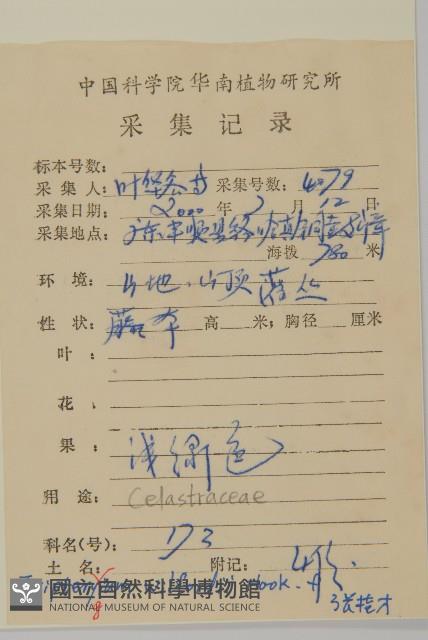 中国科学院华南植物研究所
采集记录
标本号数:
采集人:叶华谷 采集号数:4079
采集日期:2000年7月12日
采集地点:广东丰顺县 铜鼓嶂
海拨 780 米
环境:山地、山顶 丛
性状:藤本 高 米;胸径 厘米
叶:
花:
果:浅绿色
用途:Celastraceae
科名(号):173
土名: 附记:
國立自然科學博物館
NATIONAL MUSEUM OF NATURAL SCIENCE